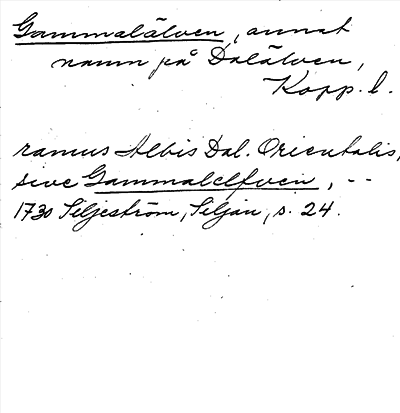 Gammalälven, annat
namn på Dalälven,
Kopp. l.
ramus Albis Dal. Orientalis,
sive Gammalelfven, --
1730 Siljeström, Siljan, s. 24.